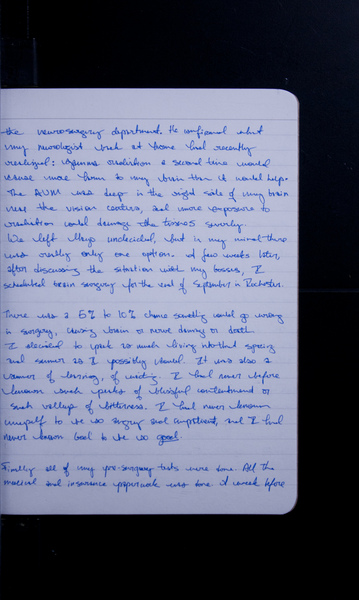 the neurosurgery department. He confirmed what
my neurologist back at home had recently
realized: Gamma radiation a second time would
cause more harm to my brain than it would help.
The AVM was deep in the right side of my brain
near the vision centers, and more exposure to
radiation could damage the tissues severely.
We left Mayo undecided, but in my mind there
was really only one option. A few weeks later,
after discussing the situation with my bosses, I
scheduled brain surgery for the end of September in Rochester.
There was a 5% to 10% chance something would go wrong
in surgery, causing brain or nerve damage or death.
I decided to pack as much living into that spring
and summer as I possibly could. It was also a
summer of learning, of reading. I had never before
known such peaks of blissful contentment or
such valleys of bitterness. I had never known
myself to be so angry and impatient, and I had
never known God to be so good.
Finally all of my pre-surgery tests were done. All the
medical and insurance paperwork was done. A week before